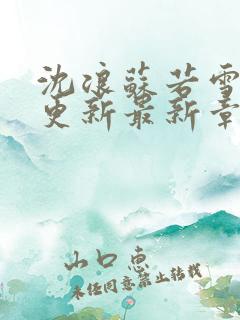 沈浪蘇若雪
更新最新章
山口惠
未经同意禁止转载